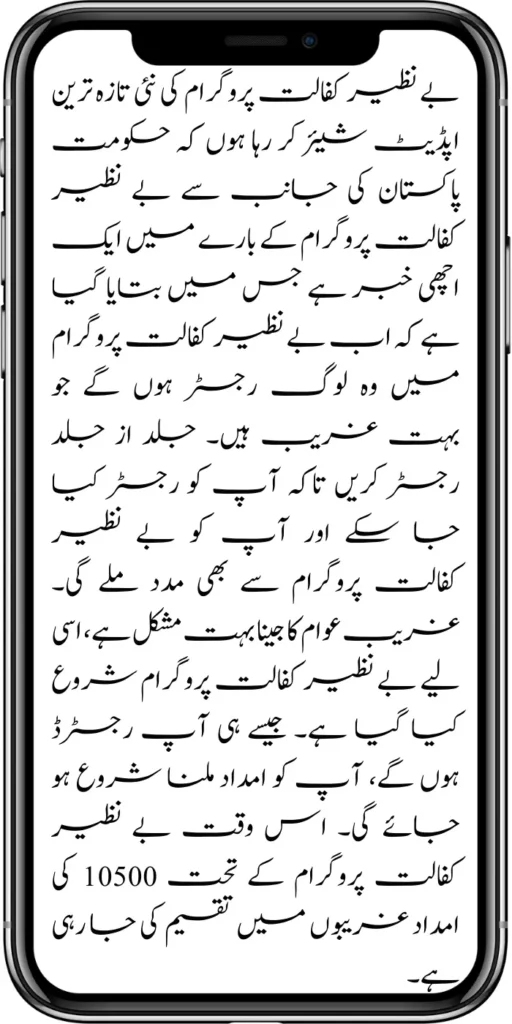 بے نظیر کفالت پروگرام کی نئی تازہ ترین
اپڈیٹ شیئر کر رہا ہوں کہ حکومت
پاکستان کی جانب سے بے نظیر
کفالت پروگرام کے بارے میں ایک
اچھی خبر ہے جس میں بتایا گیا
ہے کہ اب بے نظیر کفالت پروگرام
میں وہ لوگ رجسٹر ہوں گے جو
بہت غریب ہیں۔ جلد از جلد
رجسٹر کریں تاکہ آپ کو رجسٹر کیا
جا سکے اور آپ کو بے نظیر
کفالت پروگرام سے بھی مدد ملے گی۔
غریب عوام کا جینا بہت مشکل ہے، اسی
لیے بے نظیر کفالت پروگرام شروع
کیا گیا ہے۔ جیسے ہی آپ رجسٹرڈ
ہوں گے، آپ کو امداد ملنا شروع ہو
جائے گی۔ اس وقت بے نظیر
کفالت پروگرام کے تحت 10500 کی
امداد غریبوں میں تقسیم کی جا رہی
ہے۔